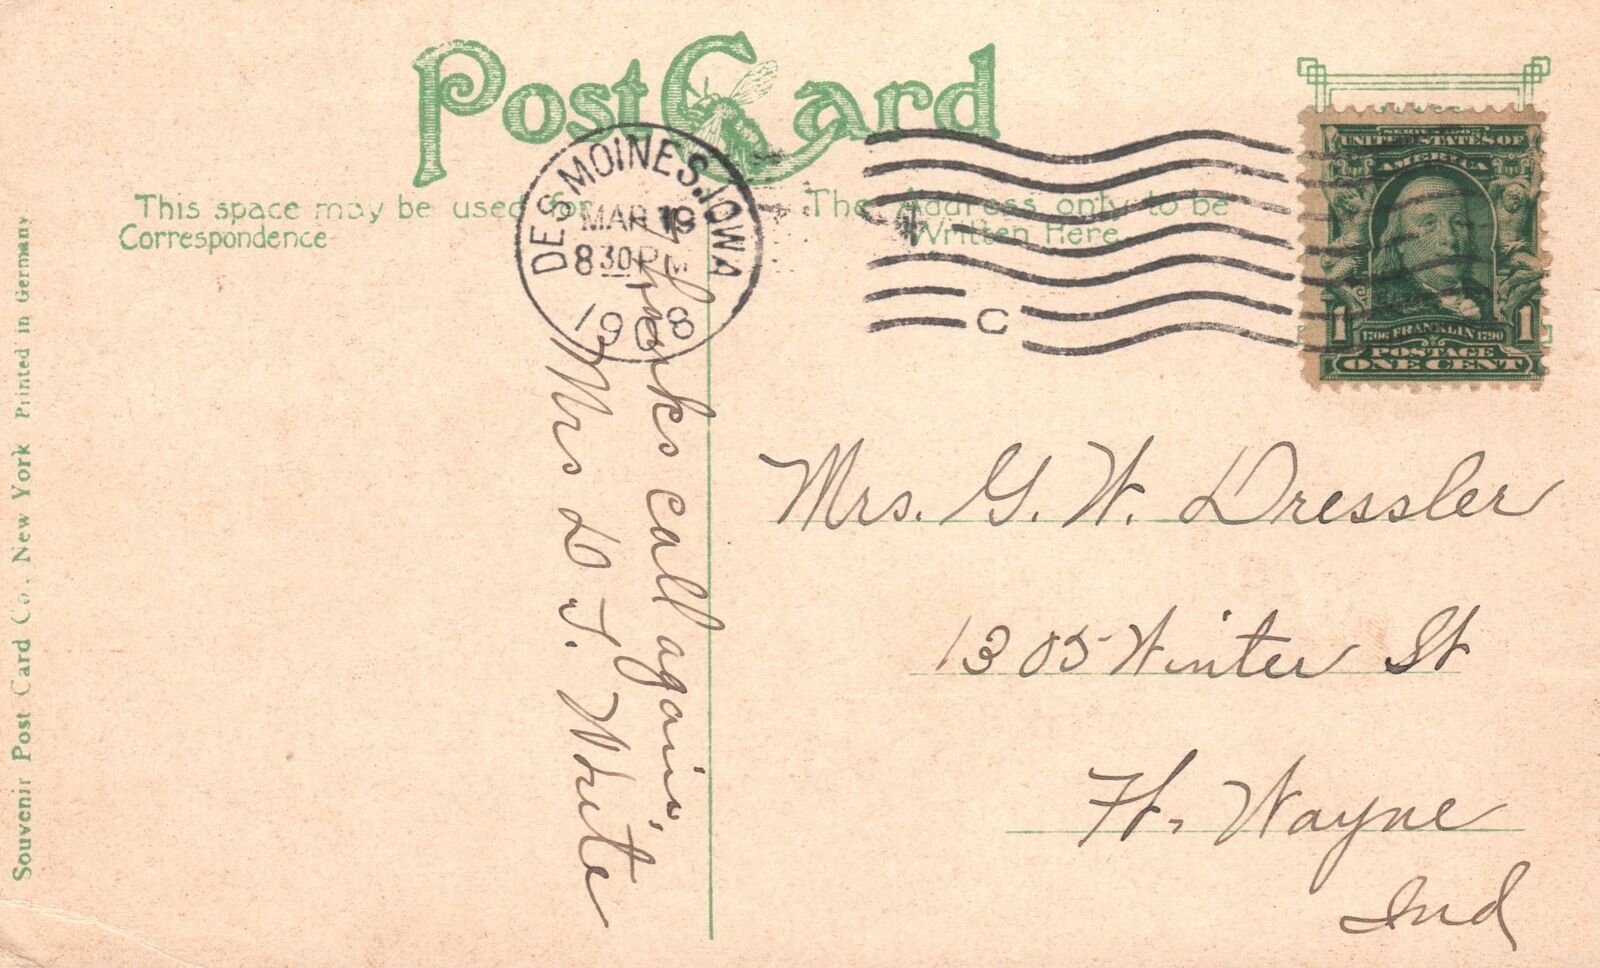 Post Card
This space may be used for
Correspondence
The Address only to be
Written Here
DES MOINES, IOWA
MAR 19
8 30 PM
1908
C
SERIES 1902
UNITED STATES OF
AMERICA
1706 FRANKLIN 1790
POSTAGE
1 ONE CENT 1
Thanks call again,
Mrs L. T. White
Mrs. G. W. Dressler
1305 Winter St
Ft. Wayne
Ind
Souvenir Post Card Co., New York Printed in Germany